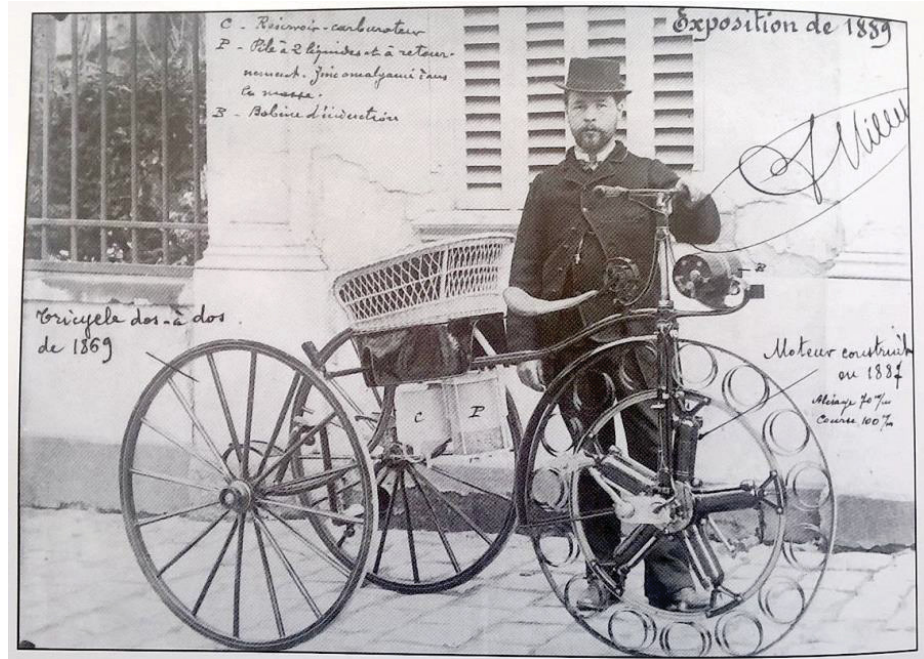 C - Réservoir-carburateur
P - Pile à 2 liquides et à retour-
nement. Zinc amalgamé dans
la masse.
B - Bobine d'induction
Exposition de 1889
Tricycle dos-à dos
de 1869
Moteur construit
en 1887
Alésage 70 m/m
Course 100 m/m
C
P
B